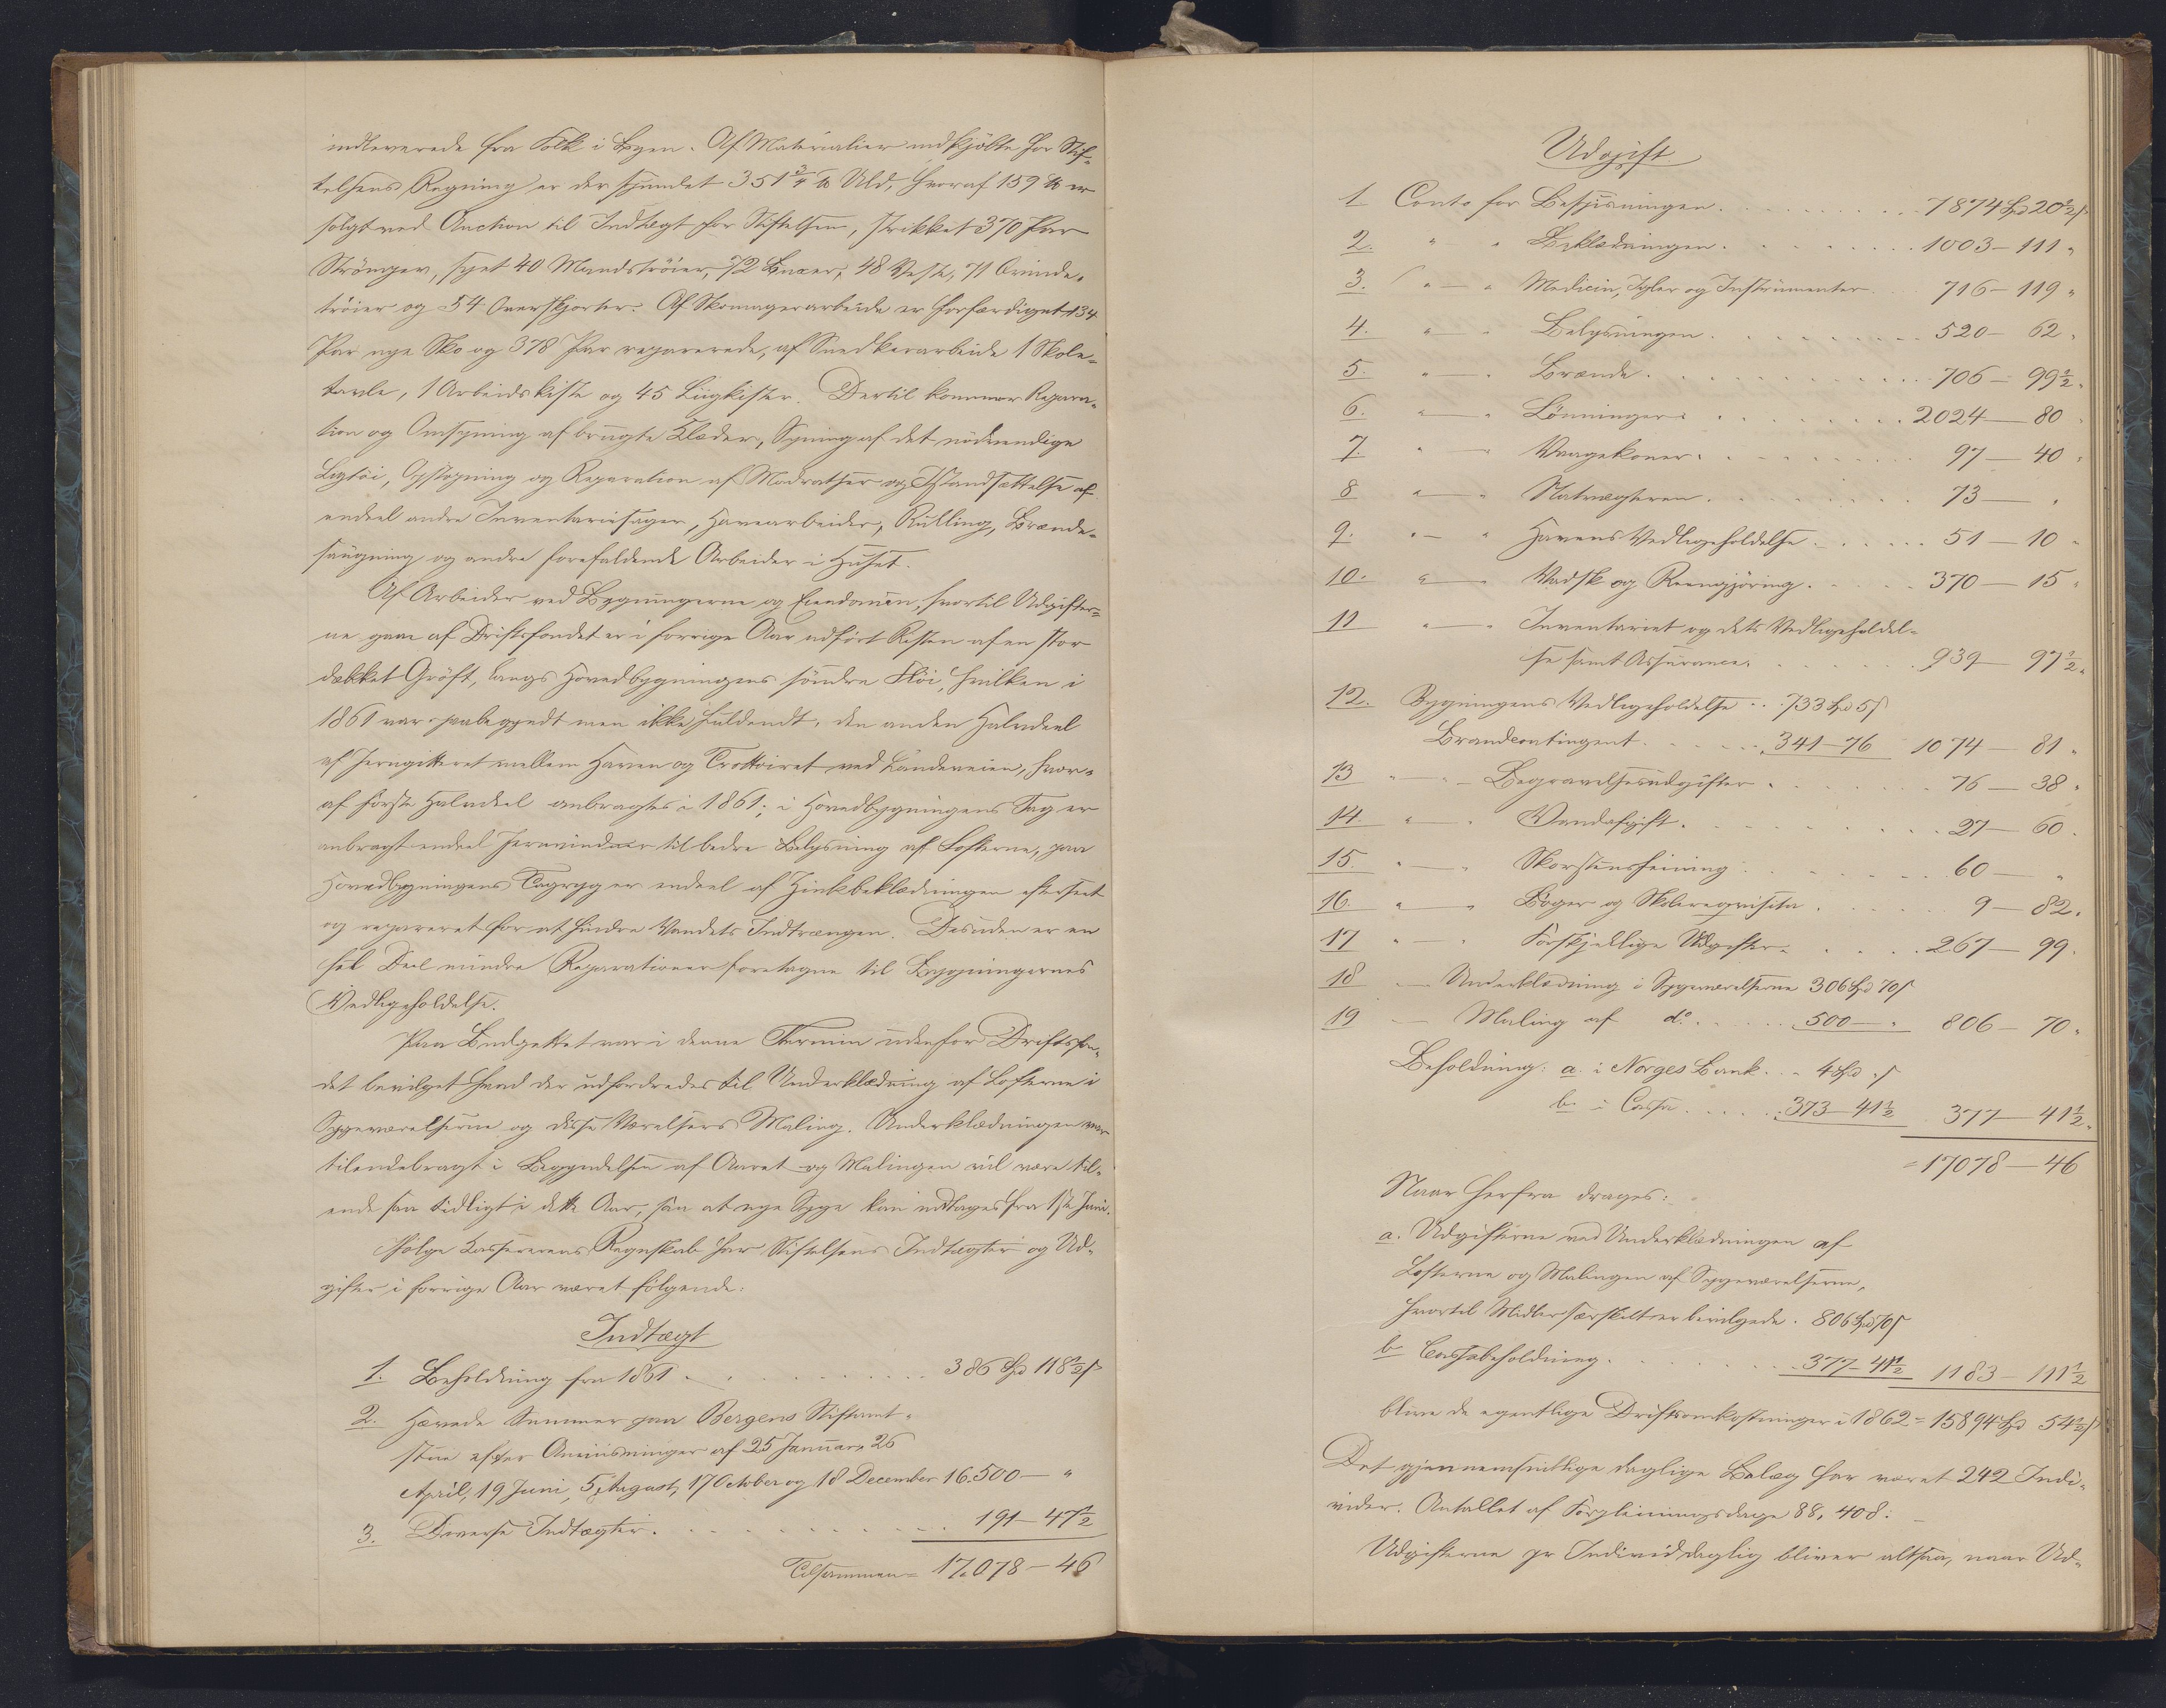 indleverede fra Folk i Byen. Af Materialier indkjöbte for Stif-
telsens Regning er der spundet 351 3/4 ℔ Uld, hvoraf 159 ℔ er
solgt ved Auction til Indtægt for Stiftelsen, strikket 370 Par
Strömper, syet 40 Mandströier, 72 Buxer, 48 Veste, 71 Qvinde-
tröier og 54 Overskjorter. Af Skomagerarbeide er forfærdiget 134
Par nye Sko og 378 Par reparerede, af Snedkerarbeide 1 Skole-
tavle, 1 Arbeidskiste og 45 Liigkister. Dertil kommer Repara-
tion og Omsyning af brugte Klæder, Syning af det nödvendige
Ligtöi, Opstopning og Reparation af Madratser og Istandsættelse af
endeel andre Inventariesager, Havearbeider, Rulling, Brænde-
saugning og andre forefaldende Arbeider i Huset.
Af Arbeider ved Bygningerne og Eiendommen, hvortil Udgifter-
ne gaae af Driftsfondet er i forrige Aar udfört Resten af en stor
dækket Gröft, langs Hovedbygningens söndre Flöi, hvilken i
1861 var paabegyndt men ikke fuldendt, den anden Halvdeel
af Jerngitteret mellem Haven og Trottoiret ved Landeveien, hvor-
af förste Halvdeel anbragtes i 1861; i Hovedbygningens Tag er
anbragt endeel Jernvinduer til bedre Belysning af Lofterne, paa
Hovedbygningens Tagryg er endeel af Zinkbeklædningen efterseet
og repareret for at hindre Vandets Indtrængen. Desuden er en
hel Deel mindre Reparationer foretagne til Bygningernes
Vedligeholdelse.
Paa Budgettet var i denne Termin udenfor Driftsfon-
det bevilget hvad der udfordredes til Underklædning af Lofterne i
Sygeværelserne og disse Værelsers Maling. Underklædningen var
tilendebragt i Begyndelsen af Aaret og Malingen vil være til-
ende saa tidligt i dette Aar, saa at nye Syge kan indtages fra 1ste Juni.
Fölge Kassererens Regnskab har Stiftelsens Indtægter og Ud-
gifter i forrige Aar været fölgende:
Indtægt
1. Beholdning fra 1861 . . . . . 386 Spd 118 1/2 ß
2. Hævede Summer paa Bergens Stiftamt-
stue efter Anviisninger af 25 Januar, 26
April, 19 Juni, 5 August, 17 October og 18 December 16.500 — "
3. Diverse Indtægter . . . . . 191 — 47 1/2
Tilsammen = 17.078 — 46
Udgift
1 Conto for Bespiisningen . . . . . 7874 Spd 20 1/2 ß
2. " " Beklædningen . . . . . 1003 — 111 "
3. " — " Medicin, Igler og Instrumenter . . 716 — 119 "
4. " — " Belysningen . . . . . 520 — 62 "
5. " — " Brænde . . . . . 706 — 99 1/2 "
6. " — " Lönninger . . . . . 2024 — 80 "
7. " — " Vaagekoner . . . . . 97 — 40 "
8 " — " Natvægteren . . . . . 73 — "
9. " — " Havens Vedligeholdelse . . . . . 51 — 10 "
10. " — " Vadsk og Reengjöring . . . . . 370 — 15 "
11 " — " Inventariet og dets Vedligeholdel-
se samt Assurance . . . . . 939 — 97 1/2 "
12. Bygningens Vedligeholdelse . . 733 Spd 5 ß
Brandcontingent . . . . . 341 — 76 1074 — 81 "
13 " — " Begravelsesudgifter . . . . . 76 — 38 "
14 " — " Vandafgift . . . . . 27 — 60 "
15. " — " Skorsteensfeining . . . . . 60 — "
16. " — " Böger og Skolereqvisita . . . . . 9 — 82 "
17 " — " Forskjellige Udgifter . . . . . 267 — 99 "
18 " — Underklædning i Sygeværelserne 306 Spd 70 ß
19 — Maling af do. . . . . 500 — " 806 — 70 "
Beholdning: a. i Norges Bank . . 4 Spd " ß
b. i Cassa . . . . . 373 — 41 1/2 377 — 41 1/2 "
= 17078 — 46
Naar herfra drages:
a. Udgifterne ved Underklædningen af
Lofterne og Malingen af Sygeværelserne,
hvortil Midler særskilt er bevilgede . 806 Spd 70 ß
b. Cassabeholdning . . . . . 377 — 41 1/2 1183 — 111 1/2
blive de egentlige Driftsomkostninger i 1862 = 15894 Spd 54 1/2 ß
Det gjennemsnitlige daglige Belæg har været 242 Indi-
vider. Antallet af Forpleiningsdage 88,408.
Udgifterne pr Individ daglig bliver altsaa, naar Ud-